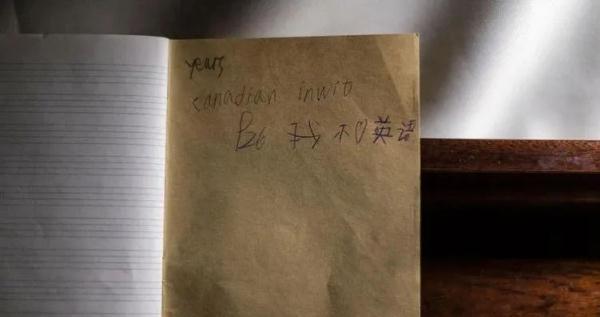 years
canadian inwit
B26 我不♡英语